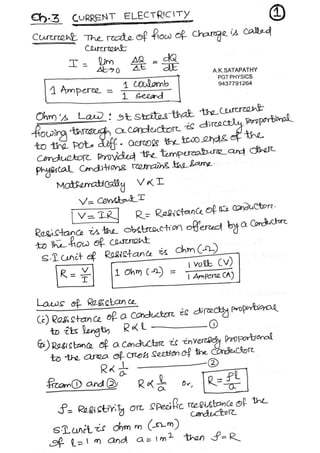 Ch:3 CURRENT ELECTRICITY ①
Current The rate of flow of charge is called
Current
I = lim Δt→0 ΔQ/Δt = dQ/dt
A.K.SATAPATHY
PGT PHYSICS
9437791264
1 Ampere = 1 coulomb / 1 second
Ohm's Law: It states that the current
flowing through a conductor is directly proportional
to the pot. diff. across the two ends of the
conductor provided the temperature and other
physical conditions remains the same.
Mathematically V ∝ I
V = Constant I
V = IR R = Resistance of the conductor.
Resistance is the obstruction offered by a conductor
to the flow of current
S.I unit of Resistance is ohm (Ω)
R = V/I 1 ohm (Ω) = 1 Volt (V) / 1 Ampere (A)
Laws of Resistance
(i) Resistance of a conductor is directly proportional
to its length R ∝ l — ①
(ii) Resistance of a conductor is inversely proportional
to the area of cross section of the conductor
R ∝ 1/a — ②
from ① and ② R ∝ l/a or, R = ρl/a
ρ = Resistivity or specific resistance of the
conductor
S.I unit is ohm m (Ωm)
If l = 1 m and a = 1m² then ρ = R